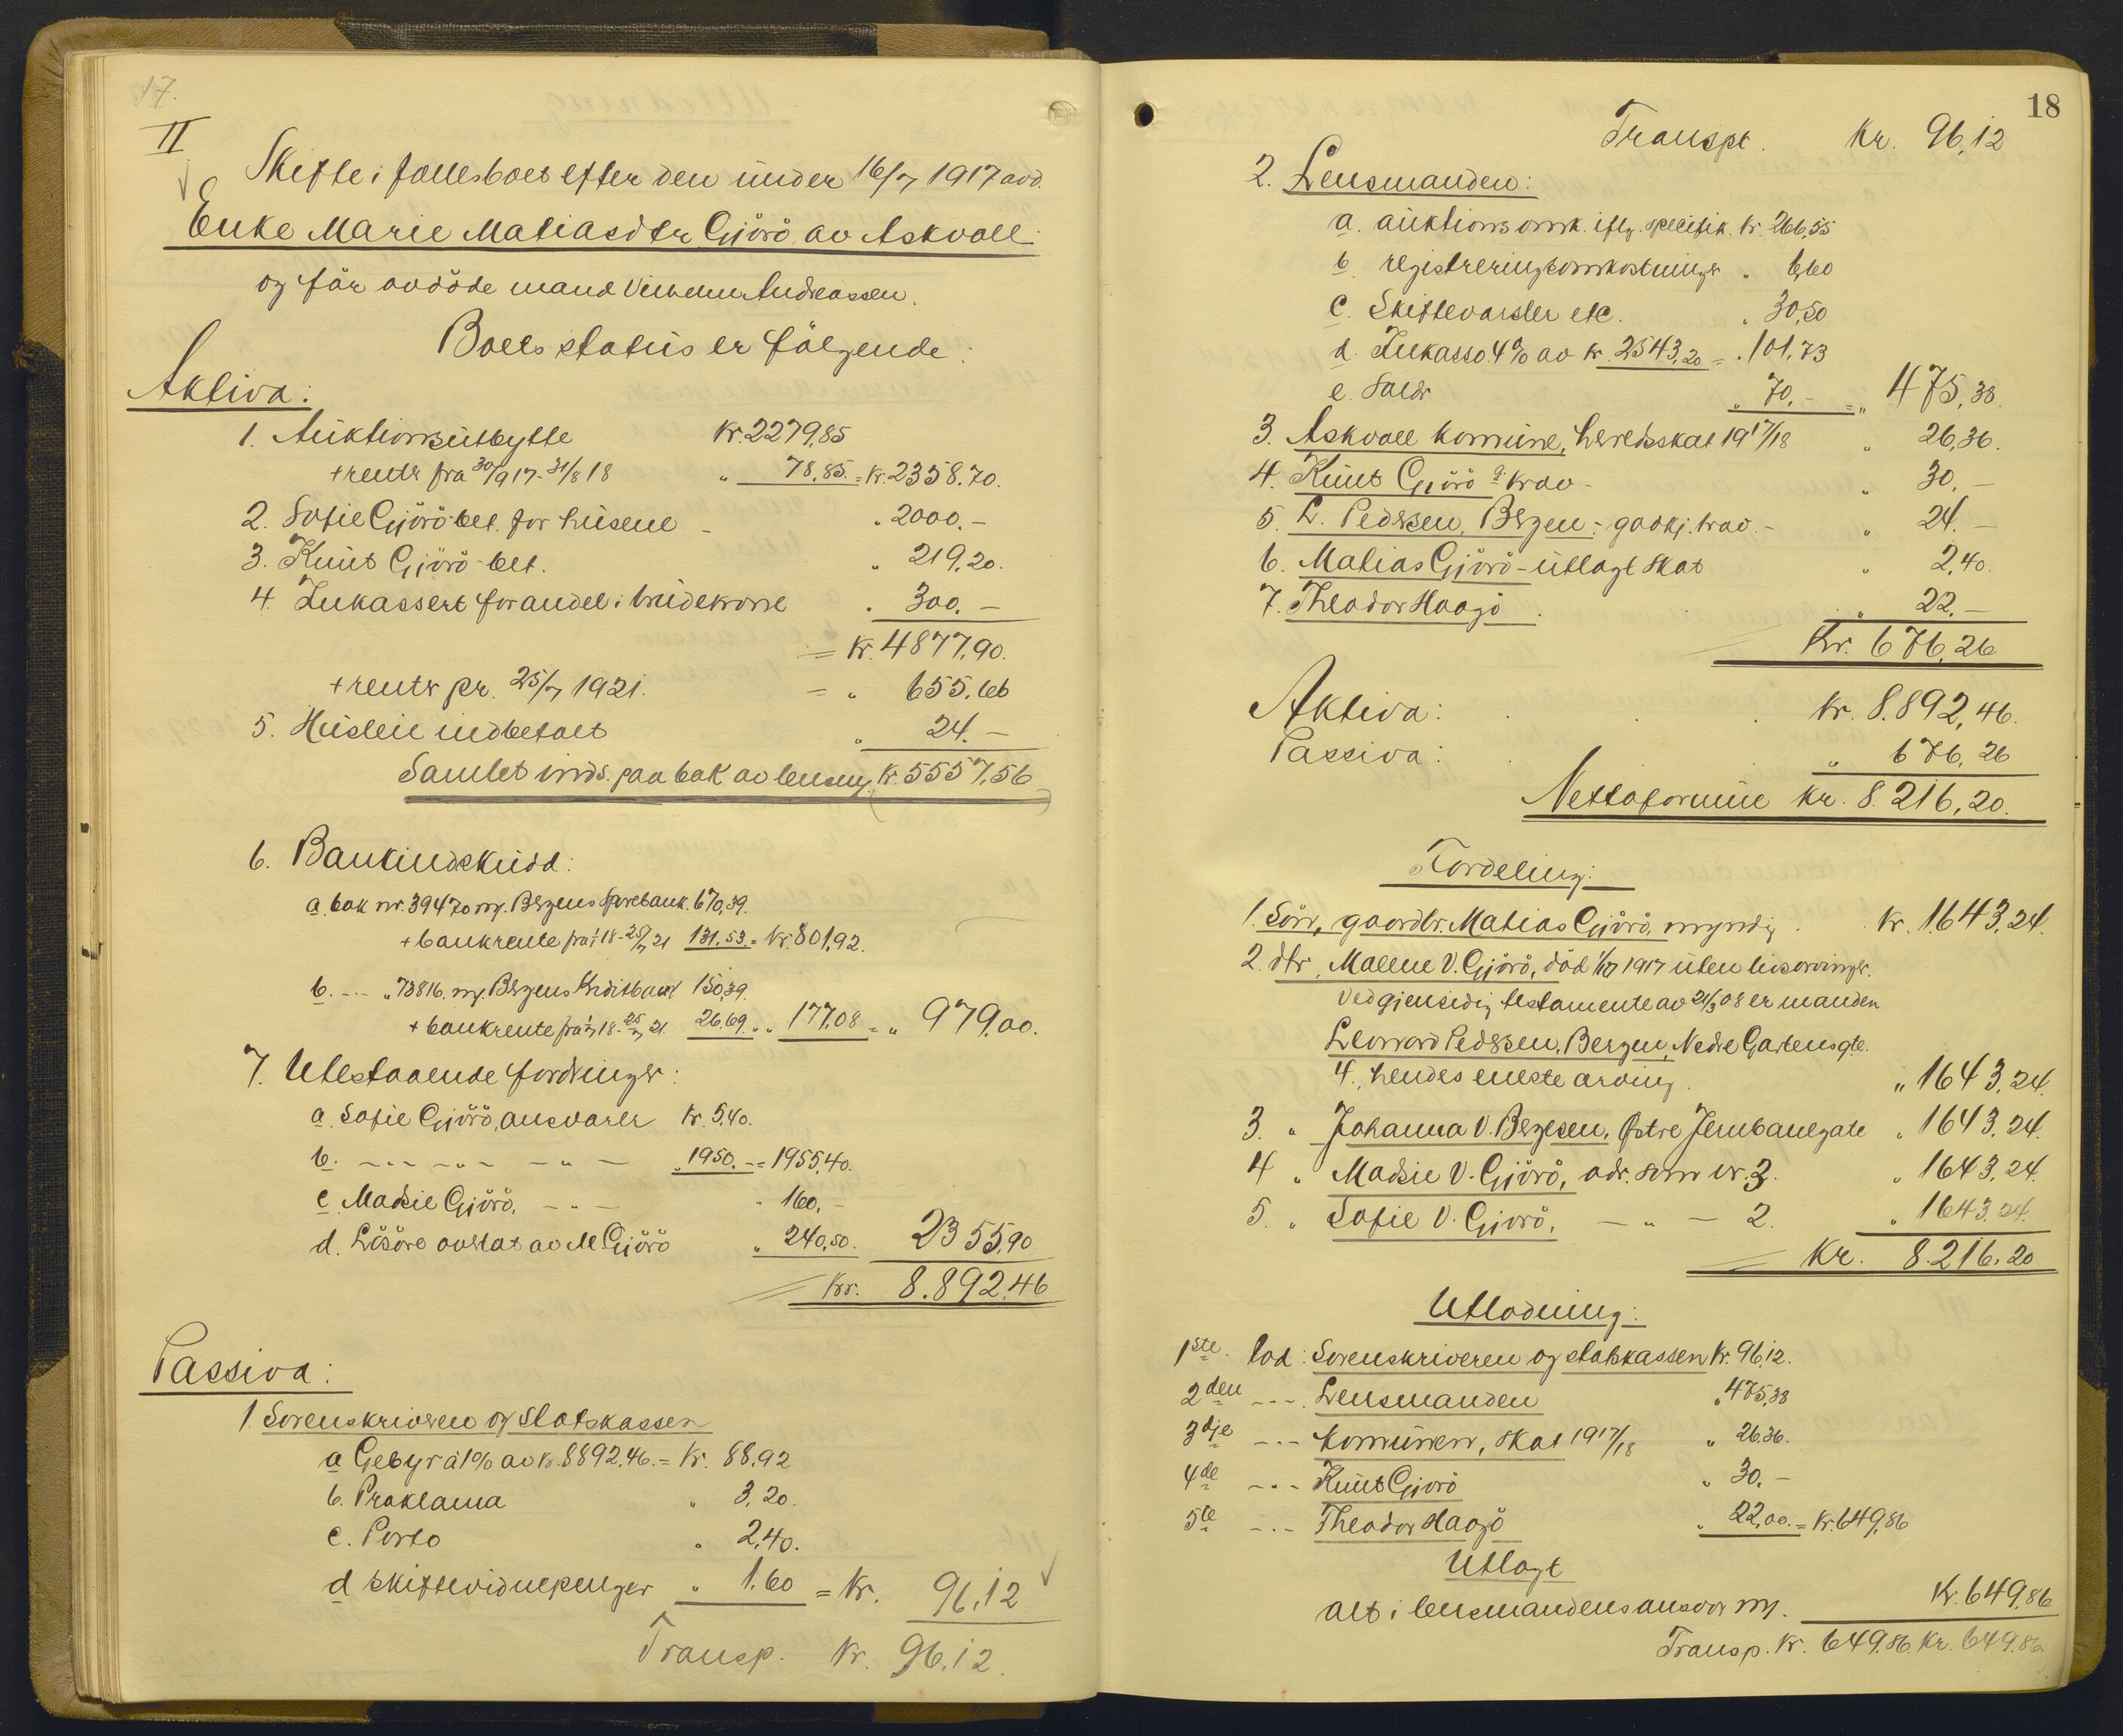 17.
II
Skifte i fællesboet efter den under 16/7 1917 avd.
Enke Marie Matiasdtr Gjörö av Askvoll
og før avdöde mand Vilhelm Andreassen.
Boets status er følgende:
Aktiva:
1. Auktionsutbytte Kr. 2279,85
+ renter fra 30/9 17 - 31/8 18 " 78,85. = Kr. 2358.70.
2. Sofie Gjörö bet. for husene - " 2000. -
3. Knut Gjörö bet. " 219,20.
4. Inkassert for andel i brudekrone " 300. -
= Kr. 4877,90.
+ renter pr. 25/7 1921. = " 655.66
5. Husleie indbetalt " 24. -
Samlet inds. paa bok av lensm. Kr. 5557,56
6. Bankindskudd:
a. bok nr. 39470 m/. Bergens Sparebank. 670,39.
+ bankrente fra 1/1 18 - 25/7 21 131,53. = Kr. 801,92.
b. -"- " 73816. m/. Bergens Kreditbank 150,39.
+ bankrente fra 1/1 18 - 25/7 21. 26,69. " " 177,08 = " 979,00.
7. Utestaaende fordringer:
a. Sofie Gjörö, ansvarer Kr. 5,40.
b. -"- -"- -"- " 1950. - = 1955,40.
c. Madsie Gjörö, -"- " 160, -
d. Lösöre overtat av M. Gjörö " 240,50. 2355,90
Kr. 8.892,46
Passiva:
1. Sorenskriveren og Statskassen
a. Gebyr à 1% av Kr. 8892.46. = Kr. 88.92
b. Proklama " 3,20.
c. Porto " 2,40.
d. Skiftevidnepenger " 1.60 = Kr. 96,12
Transp. Kr. 96.12.
18
Transpt. Kr. 96,12
2. Lensmanden:
a. auktionsomk. iflg. specifik. Kr. 266,55
b. registreringsomkostninger " 6,60
c. Skiftevarsler etc. " 30,50
d. Inkasso 4% av Kr. 2543,20 = " 101,73
e. Salær " 70. - = " 475,38.
3. Askvoll komune, herredsskat 1917/18 " 26,36.
4. Knut Gjörö krav - " 30. -
5. L. Pedersen, Bergen - godkj. krav. - " 24. -
6. Matias Gjörö - utlagt skat " 2,40.
7. Theodor Haagö . " 22. -
Kr. 676,26
Aktiva: . . . Kr. 8.892,46.
Passiva: . . " 676,26
Nettoformue Kr. 8.216,20.
Fordeling:
1. Sön, gaardbr. Matias Gjörö, myndig . . Kr. 1643,24.
2. dtr. Malene V. Gjörö, död 1917 uten livsarvinger.
Ved gjensidig testamente av 21/3 08 er manden
Leonard Pedersen, Bergen, Nedre Gartensgte.
4., hendes eneste arving. " 1643,24.
3. " Johanna V. Bergesen, Østre Jernbanegate " 1643,24.
4 " Madsie V. Gjörö, adr. som nr. 3. " 1643,24.
5. " Sofie V. Gjörö, - " - 2. " 1643.24.
Kr. 8.216.20
Utlodning:
1ste. lod: Sorenskriveren og statskassen Kr. 96,12.
2den -"- Lensmanden " 475,38
3dje -"- Komunen, skat 1917/18 " 26.36.
4de -"- Knut Gjörö " 30. -
5te -"- Theodor Haagö " 22,00. = Kr. 649,86
Utlagt
alt i lensmandens ansvar m/. Kr. 649,86
Transp. Kr. 649.86. Kr. 649.86.